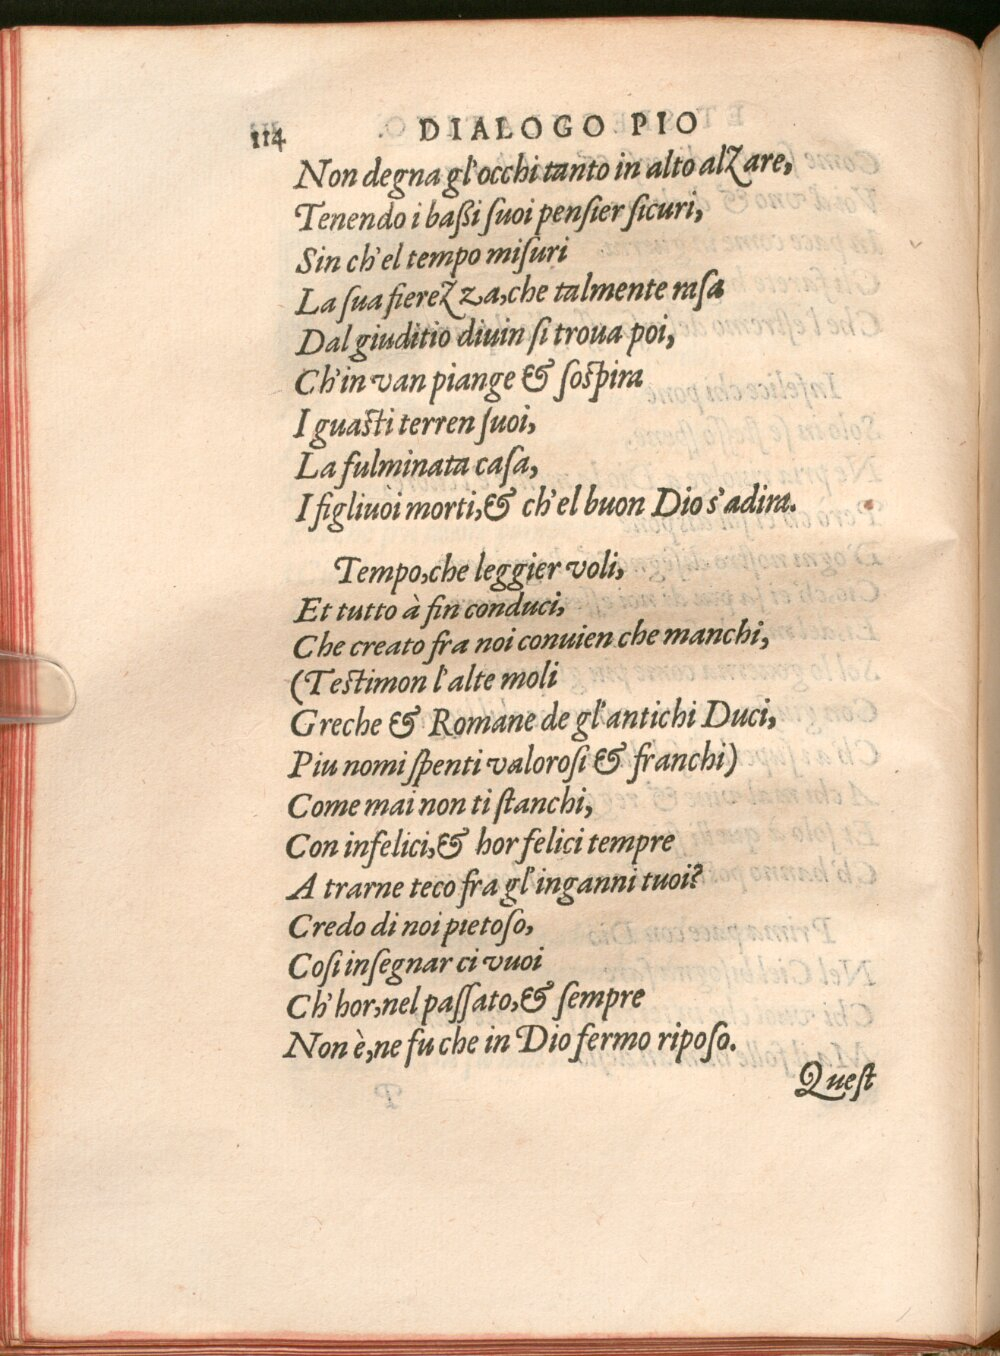 114 DIALOGO PIO
Non degna gl'occhi tanto in alto alzare,
Tenendo i baßi suoi pensier sicuri,
Sin ch'el tempo misuri
La sua fierezza, che talmente rasa
Dal giuditio diuin si troua poi,
Ch'in van piange & sospira
I guasti terren suoi,
La fulminata casa,
I figliuoi morti, & ch'el buon Dio s'adira.
Tempo, che leggier voli,
Et tutto à fin conduci,
Che creato fra noi conuien che manchi,
(Testimon l'alte moli
Greche & Romane de gl'antichi Duci,
Piu nomi spenti valorosi & franchi)
Come mai non ti stanchi,
Con infelici, & hor felici tempre
A trarne teco fra gl'inganni tuoi?
Credo di noi pietoso,
Cosi insegnar ci vuoi
Ch'hor, nel passato, & sempre
Non è, ne fu che in Dio fermo riposo.
Quest